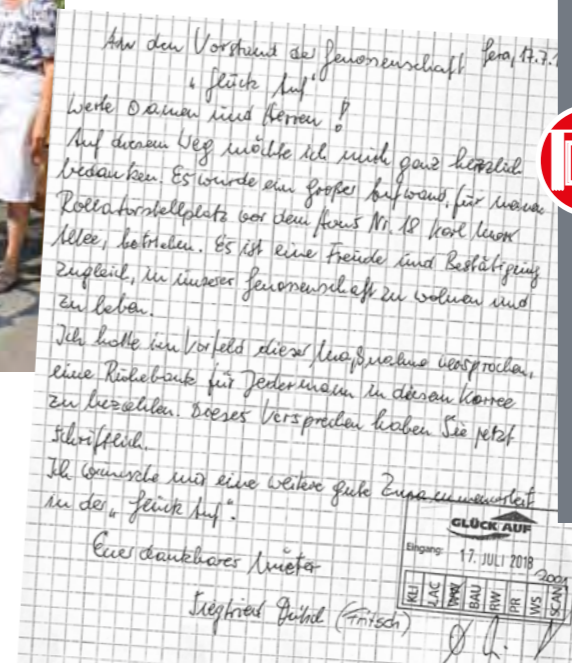 An den Vorstand der Genossenschaft Gera, 17.7.
"Glück Auf"
Werte Damen und Herren!
Auf diesem Weg möchte ich mich ganz herzlich
bedanken. Es wurde ein großer Aufwand, für meinen
Rollatorstellplatz vor dem Haus Nr. 18 Karl Marx
Allee, betrieben. Es ist eine Freude und Bestätigung
zugleich, in unserer Genossenschaft zu wohnen und
zu leben.
Ich hatte im Vorfeld dieser Maßnahme versprochen,
eine Ruhebank für Jedermann in diesem Karree
zu bezahlen. Dieses Versprechen haben Sie jetzt
schriftlich.
Ich wünsche mir eine weitere gute Zusammenarbeit
in der "Glück Auf".
Euer dankbarer Mieter
Siegfried (Fritsch)
GLÜCK AUF
Eingang: 17. JULI 2018
KLI LAC BAU RW PR WS SCAN